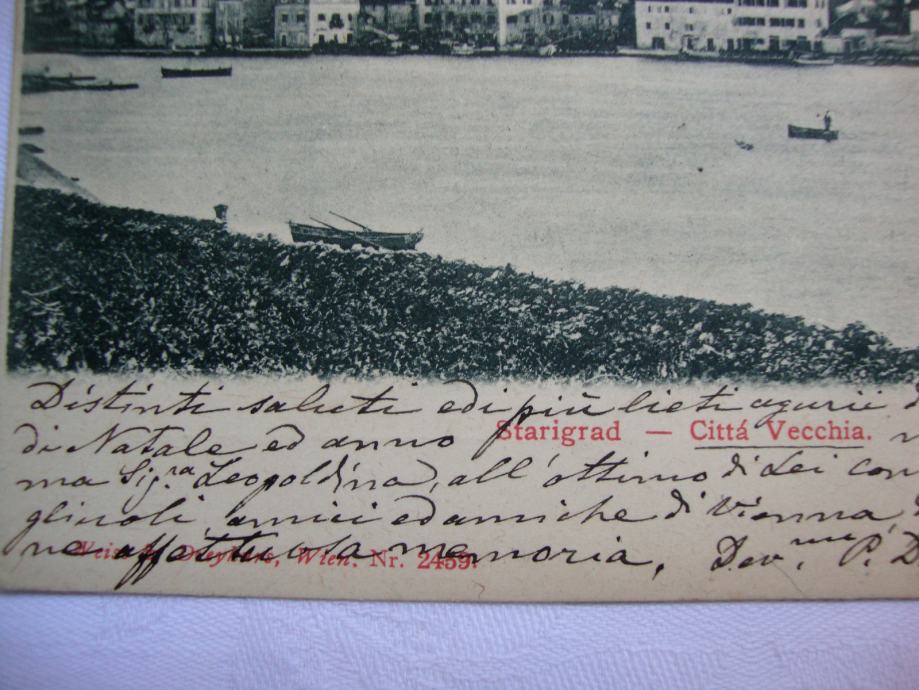 Distinti saluti ed i più lieti agurii
di Natale ed anno
Starigrad — Cittá Vecchia.
ma Sig.ra Leopoldina, all' ottimo di Lei con
gliuoli, amici ed amiche di Vienna,
ne affettuosa memoria, Dev.mo P. D
Wien. Nr. 2459.